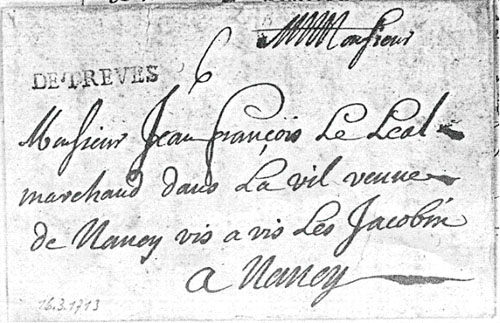 Monsieur
DE TREVES 6
Monsieur Jean françois Le Leal
marchand dans La vil venne
de Nancy vis a vis Les Jacobin
a Nancy
16.3.1713